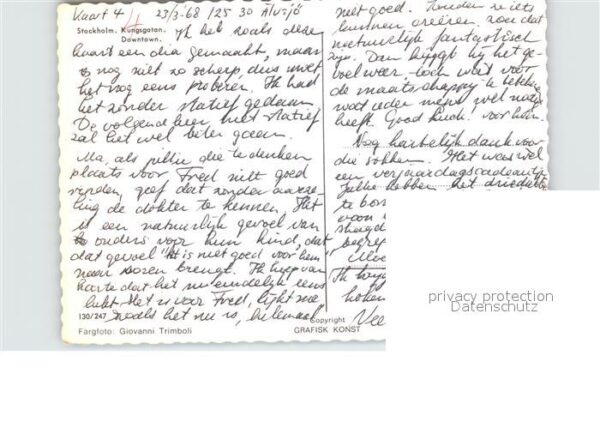 Kaart 4 23/3-'68 /25 30 Älvsjö
Stockholm. Kungsgatan.
Downtown.
Ik heb zoals deze
kaart een dia gemaakt, maar
nog niet zo scherp, dus moet
het nog eens proberen. Ik had
het zonder statief gedaan.
De volgende keer met statief
zal het wel beter gaan.
Ma, als jullie die te denken
plaats voor Fred niet goed
vinden, geef dat zonder aarze-
ling de dokter te kennen. Het
is een natuurlijk gevoel van
ouders voor hun kind, dat
dat gevoel "it is niet goed voor hem"
naar boven brengt. Ik hoop van
harte dat het nu eindelijk eens
lukt. Het is voor Fred, lijkt me
zoals het nu is, helemaal
130/247
Fargfoto: Giovanni Trimboli
niet goed. Zouden ze iets
kunnen creëren, zou dat
natuurlijk fantastisch
zijn. Dan krijgt hij het ge-
voel weer toch wat voor
de maatschappij te betekenen
wat ieder mens wel nodig
heeft. Good luck! voor hem.
Nog hartelijk dank voor
die sokken. Het was wel
een verjaardagscadeautje
Jullie hebben het
te
voor
begre
Ik hoop
Vee
Copyright
GRAFISK KONST
privacy protection
Datenschutz